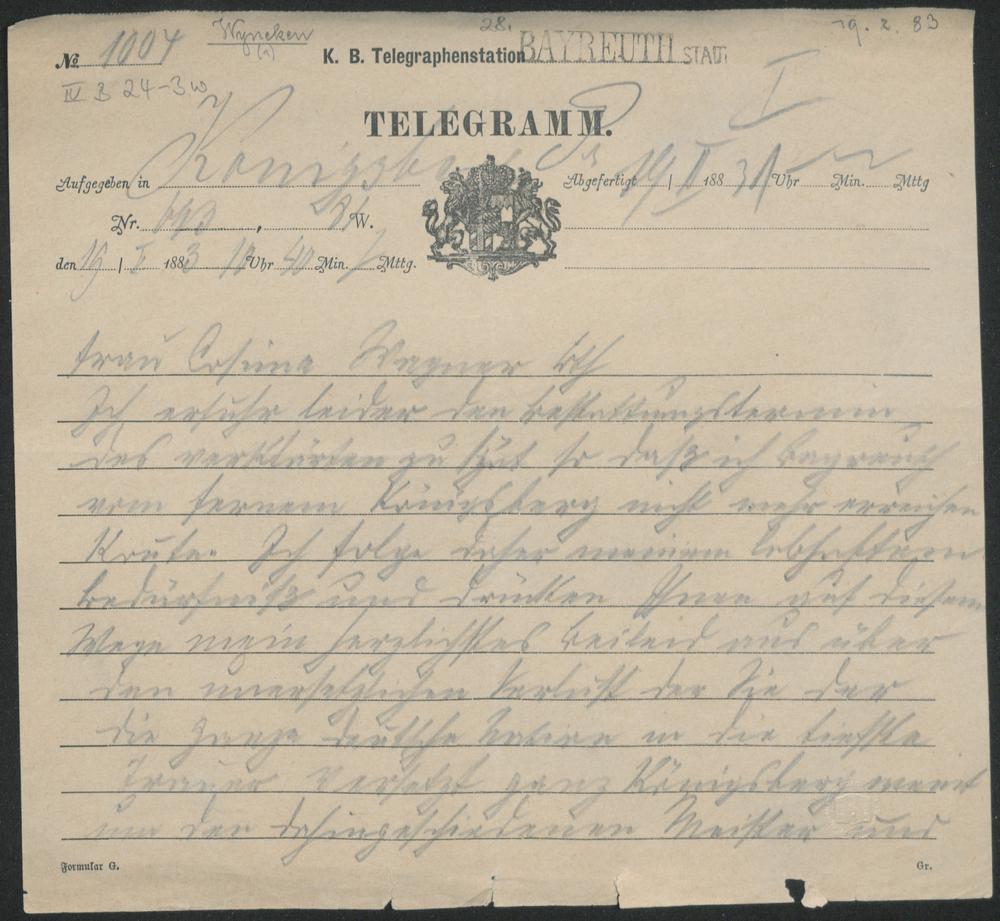 Wyneken
(1)
28.
19. 2. 83
№ 1004
K. B. Telegraphenstation BAYREUTH STADT
IV B 24-3 w
I
TELEGRAMM.
Aufgegeben in Königsberg Pr
Abgefertigt 19 | II 188 3 Uhr Min. Mttg
Nr. , W.
den 19 | 188 3 10 Uhr 40 Min. Mttg.
Frau Cosima Wagner Bth
Ich erfuhr leider den Bestattungstermin
des verklärten zu spät so daß ich Bayreuth
vom fernem Königsberg nicht mehr erreichen
konnte. Ich folge daher meinem lebhaftem
Bedürfniß und drücken Ihnen auf diesem
Wege mein herzlichstes Beileid aus über
den unersetzlichen Verlust der Sie der
die ganze deutsche Nation in die tiefste
Trauer versetzt ganz Königsberg weint
um den dahingeschiedenen Meister und
Formular G.
Gr.